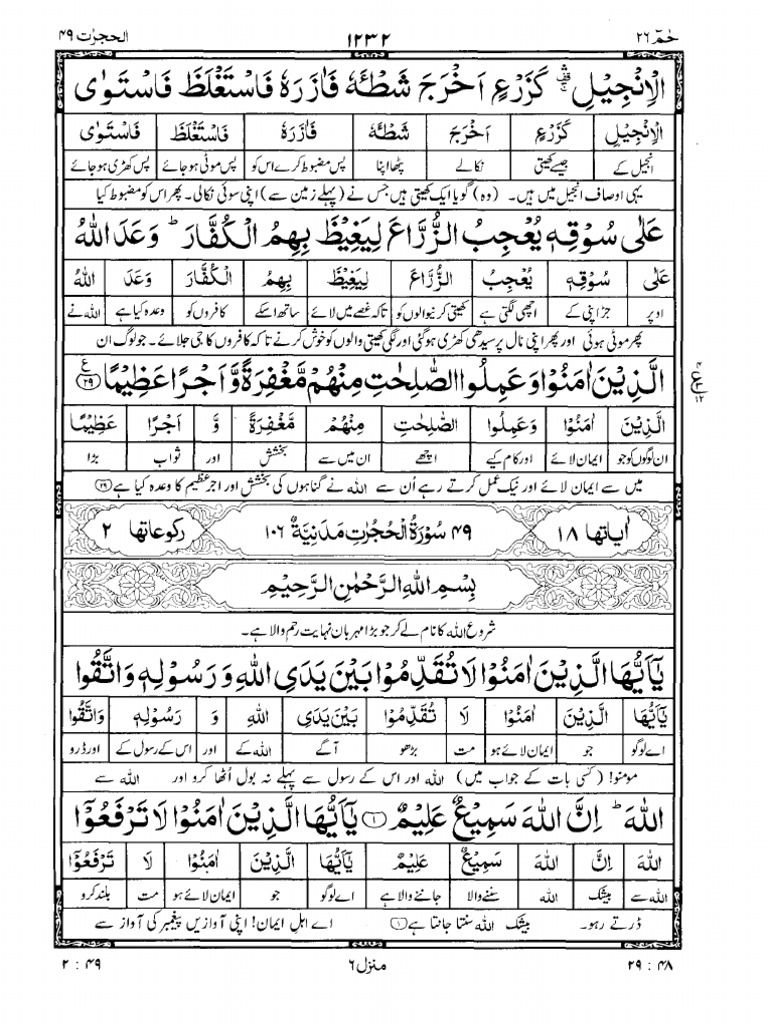 حٰمٓ ۲۶ ۱۲۳۲ الحجرٰت ۴۹
الْاِنْجِيْلِ ۛۚ كَزَرْعٍ اَخْرَجَ شَطْـَٔهٗ فَاٰزَرَهٗ فَاسْتَغْلَظَ فَاسْتَوٰى
الْاِنْجِيْلِ كَزَرْعٍ اَخْرَجَ شَطْـَٔهٗ فَاٰزَرَهٗ فَاسْتَغْلَظَ فَاسْتَوٰى
انجیل کے جیسے کھیتی نکالے پٹھا اپنا پس مضبوط کرے اس کو پس موٹی ہو جائے پس کھڑی ہو جائے
یہی اوصاف انجیل میں ہیں۔ (وہ) گویا ایک کھیتی ہیں جس نے (پہلے زمین سے) اپنی سوئی نکالی۔ پھر اس کو مضبوط کیا
عَلٰى سُوْقِهٖ يُعْجِبُ الزُّرَّاعَ لِيَغِيْظَ بِهِمُ الْكُفَّارَ ؕ وَعَدَ اللّٰهُ
عَلٰى سُوْقِهٖ يُعْجِبُ الزُّرَّاعَ لِيَغِيْظَ بِهِمُ الْكُفَّارَ وَعَدَ اللّٰهُ
اوپر جڑ اپنی کے اچھی لگتی ہے کھیتی کرنیوالوں کو تاکہ غصے میں لائے ساتھ اسکے کافروں کو وعدہ کیا ہے اللہ نے
پھر موٹی ہوئی اور پھر اپنی نال پر سیدھی کھڑی ہوگئی اور لگی کھیتی والوں کو خوش کرنے تاکہ کافروں کا جی جلائے۔ جو لوگ ان
الَّذِيْنَ اٰمَنُوْا وَعَمِلُوا الصّٰلِحٰتِ مِنْهُمْ مَّغْفِرَةً وَّاَجْرًا عَظِيْمًا ﴿۲۹﴾ ع
الَّذِيْنَ اٰمَنُوْا وَعَمِلُوا الصّٰلِحٰتِ مِنْهُمْ مَّغْفِرَةً وَّ اَجْرًا عَظِيْمًا
ان لوگوں کو جو ایمان لائے اور کام کیے اچھے ان میں سے بخشش اور ثواب بڑا
میں سے ایمان لائے اور نیک عمل کرتے رہے اُن سے اللہ نے گناہوں کی بخشش اور اجر عظیم کا وعدہ کیا ہے ﴿۲۹﴾
اٰیاتها ۱۸ ۴۹ سُوْرَةُ الْحُجُرٰتِ مَدَنِيَّةٌ ۱۰۶ رکوعاتها ۲
بِسْمِ اللّٰهِ الرَّحْمٰنِ الرَّحِيْمِ
شروع اللہ کا نام لے کر جو بڑا مہربان نہایت رحم والا ہے۔
يٰٓاَيُّهَا الَّذِيْنَ اٰمَنُوْا لَا تُقَدِّمُوْا بَيْنَ يَدَيِ اللّٰهِ وَ رَسُوْلِهٖ وَاتَّقُوا
يٰٓاَيُّهَا الَّذِيْنَ اٰمَنُوْا لَا تُقَدِّمُوْا بَيْنَ يَدَيِ اللّٰهِ وَ رَسُوْلِهٖ وَاتَّقُوا
اے لوگو جو ایمان لائے ہو مت بڑھو آگے اللہ کے اور اس کے رسول کے اور ڈرو
مومنو! (کسی بات کے جواب میں) اللہ اور اس کے رسول سے پہلے نہ بول اُٹھا کرو اور اللہ سے
اللّٰهَ ؕ اِنَّ اللّٰهَ سَمِيْعٌ عَلِيْمٌ ﴿۱﴾ يٰٓاَيُّهَا الَّذِيْنَ اٰمَنُوْا لَا تَرْفَعُوْٓا
اللّٰهَ اِنَّ اللّٰهَ سَمِيْعٌ عَلِيْمٌ يٰٓاَيُّهَا الَّذِيْنَ اٰمَنُوْا لَا تَرْفَعُوْٓا
اللہ سے بیشک اللہ سننے والا جاننے والا ہے اے لوگو جو ایمان لائے ہو مت بلند کرو
ڈرتے رہو۔ بیشک اللہ سنتا جانتا ہے ﴿۱﴾ اے اہل ایمان! اپنی آوازیں پیغمبر کی آواز سے
۴۸ : ۲۹ منزل ۶ ۴۹ : ۲